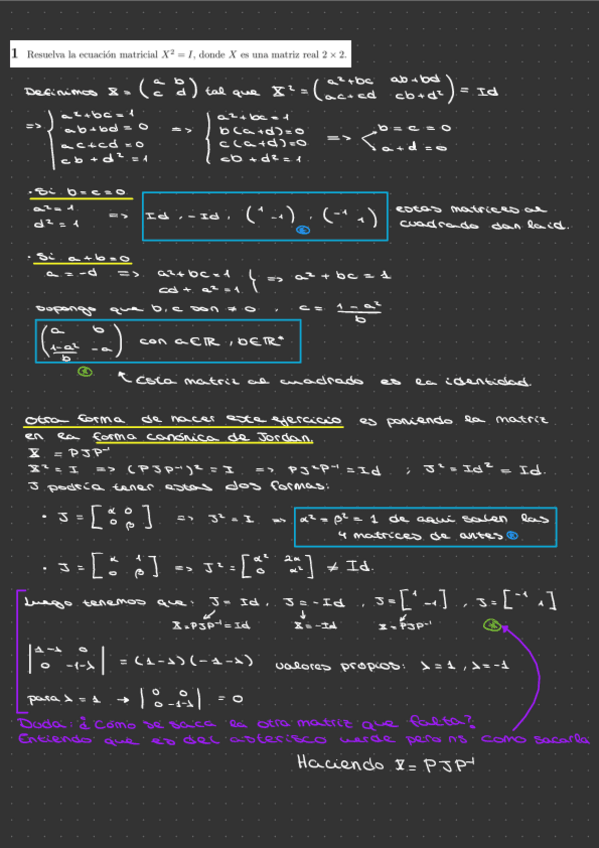 1 Resuelva la ecuación matricial X² = I, donde X es una matriz real 2 × 2.
Definimos X = (a b; c d) tal que X² = (a²+bc ab+bd; ac+cd cb+d²) = Id
=> { a²+bc=1; ab+bd=0; ac+cd=0; cb+d²=1 => { a²+bc=1; b(a+d)=0; c(a+d)=0; cb+d²=1 => < b=c=0; a+d=0
· Si b=c=0
a²=1
d²=1 => Id, -Id, (1 -1), (-1 1) estas matrices al cuadrado dan la id.
· Si a+b=0
a=-d => a²+bc=1; cd+a²=1 } => a²+bc=1
Supongo que b,c son ≠0, c = (1-a²)/b
(a b; (1-a²)/b -a) con a∈ℝ, b∈ℝ*
Esta matriz al cuadrado es la identidad.
Otra forma de hacer este ejercicio es poniendo la matriz
en la forma canónica de Jordan.
X = PJP⁻¹
X²=I => (PJP⁻¹)²=I => PJ²P⁻¹=Id ; J²=Id²=Id.
J podría tener estas dos formas:
· J = [α 0; 0 β] => J²=I => α²=β²=1 de aquí salen las 4 matrices de antes
· J = [α 1; 0 β] => J² = [α² 2α; 0 α²] ≠ Id.
Luego tenemos que: J=Id, J=-Id, J=[1 -1], J=[-1 1]
X=PJP⁻¹=Id X=-Id X=PJP⁻¹
|1-λ 0; 0 -1-λ| = (1-λ)(-1-λ) valores propios: λ=1, λ=-1
para λ=1 → |0 0; 0 -1-λ| = 0
Duda: ¿Cómo se saca la otra matriz que falta?
Entiendo que es del asterisco verde pero ns como sacarla
Haciendo X=PJP⁻¹